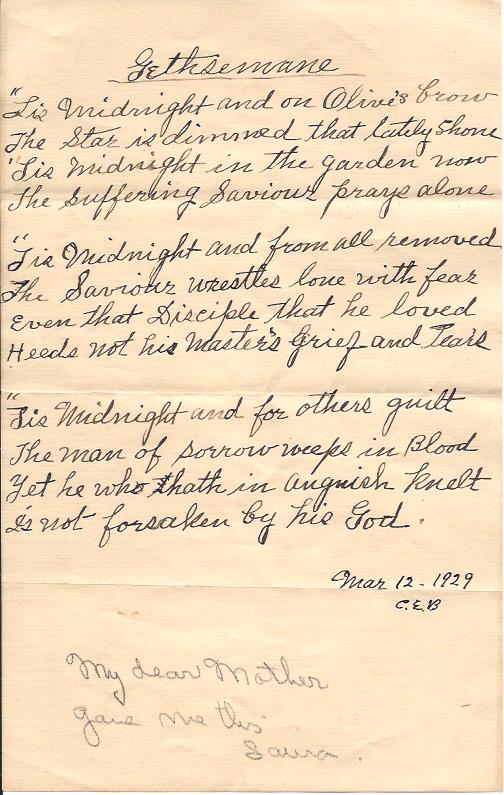 Gethsemane
"Tis Midnight and on Olive's brow
The Star is dimmed that lately shone
"Tis Midnight in the garden now
The Suffering Saviour prays alone
"Tis Midnight and from all removed
The Saviour wrestles lone with fear
Even that Disciple that he loved
Heeds not his Master's Grief and Tears
"Tis Midnight and for others guilt
The man of sorrow weeps in Blood
Yet he who hath in anguish knelt
Is not forsaken by his God.
Mar 12 - 1929
C.E.B
My dear Mother
gave me this
Laura.